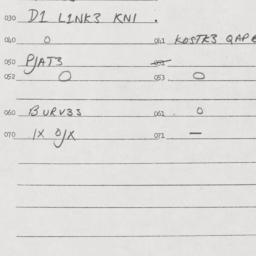 030 D1 L1NK3 KN1 .
040 O 041 KOSTK3 QAP
050 PJAT3 051
052 O 053 O
060 BURV33 061 O
070 1X OJX 071 —